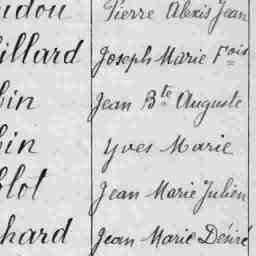 udou Pierre Alexis Jean
illard Joseph Marie Fois
bin Jean Bte Auguste
bin Yves Marie
blot Jean Marie Julien
hard Jean Marie Désiré